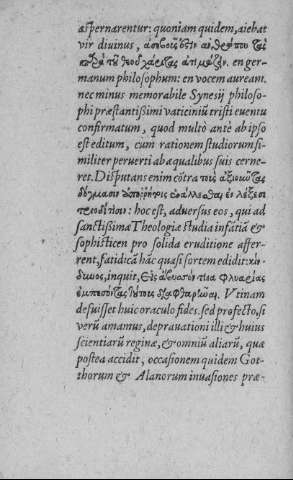 aspernarentur: quoniam quidem, aiebat
vir divinus, ἀσεβεῖς
germanum philosophum: en vocem auream.
nec minus memorabile Synesij philoso-
phi præstantißimi vaticiniũ tristi eventu
confirmatum, quod multò ante ab ipso
est editum, cum rationem studiorum si-
militer perverti ab æqualibus suis cerne-
ret. Disputans enim cõtra τοὺς ἀξιοῦντας
ἐν λέξεσι
: hoc est, adversus eos, qui ad
sanctißima Theologiæ studia infãtiã &
sophisticen pro solida eruditione affer-
rent, fatidicã hãc quasi sortem edidit: κίν-
δυνος, inquit, εἰς ἄβυσσόν φλυαρίας
ἐμπεσόντας τούτους διαφθαρῆναι. Utinam
defuisset huic oraculo fides. sed profectò, si
verũ amamus, depravationi illi & huius
scientiarũ reginæ, & omniũ aliarũ, quæ
postea accidit, occasionem quidem Got-
thorum & Alanorum invasiones præ-